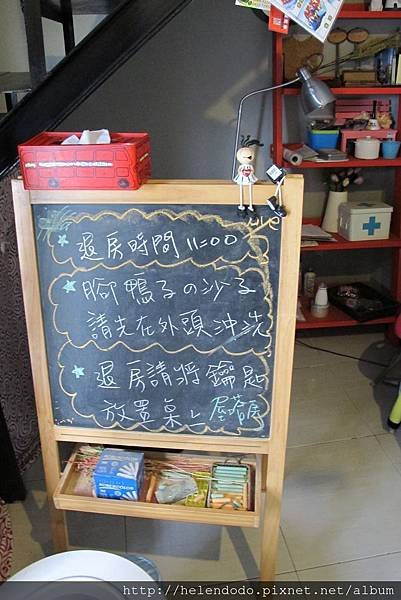 退房時間 11:00
腳鴨子の沙子
請先在外頭沖洗
退房請將鑰匙
放置桌上
http://helendodo.pixnet.net/album